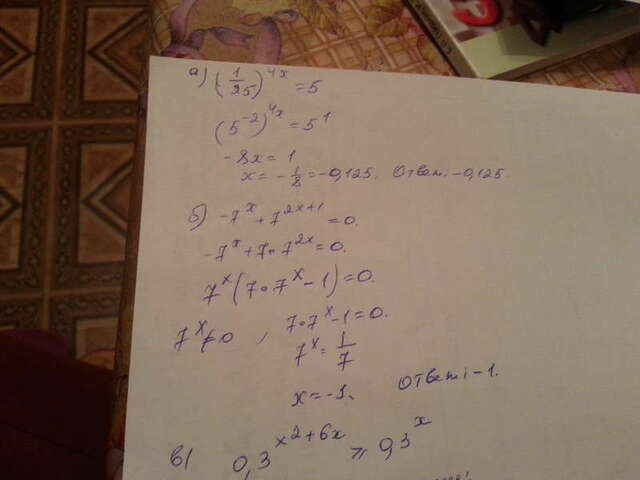 а) (1/25)^4x = 5
(5^-2)^4x = 5^1
-8x = 1
x = -1/8 = -0,125. Ответ: -0,125.
б) -7^x + 7^2x+1 = 0.
-7^x + 7∘7^2x = 0.
7^x (7∘7^x - 1) = 0.
7^x ≠ 0 , 7∘7^x - 1 = 0.
7^x = 1/7
x = -1. Ответ: -1.
в) 0,3^x2+6x ≥ 0,3^x